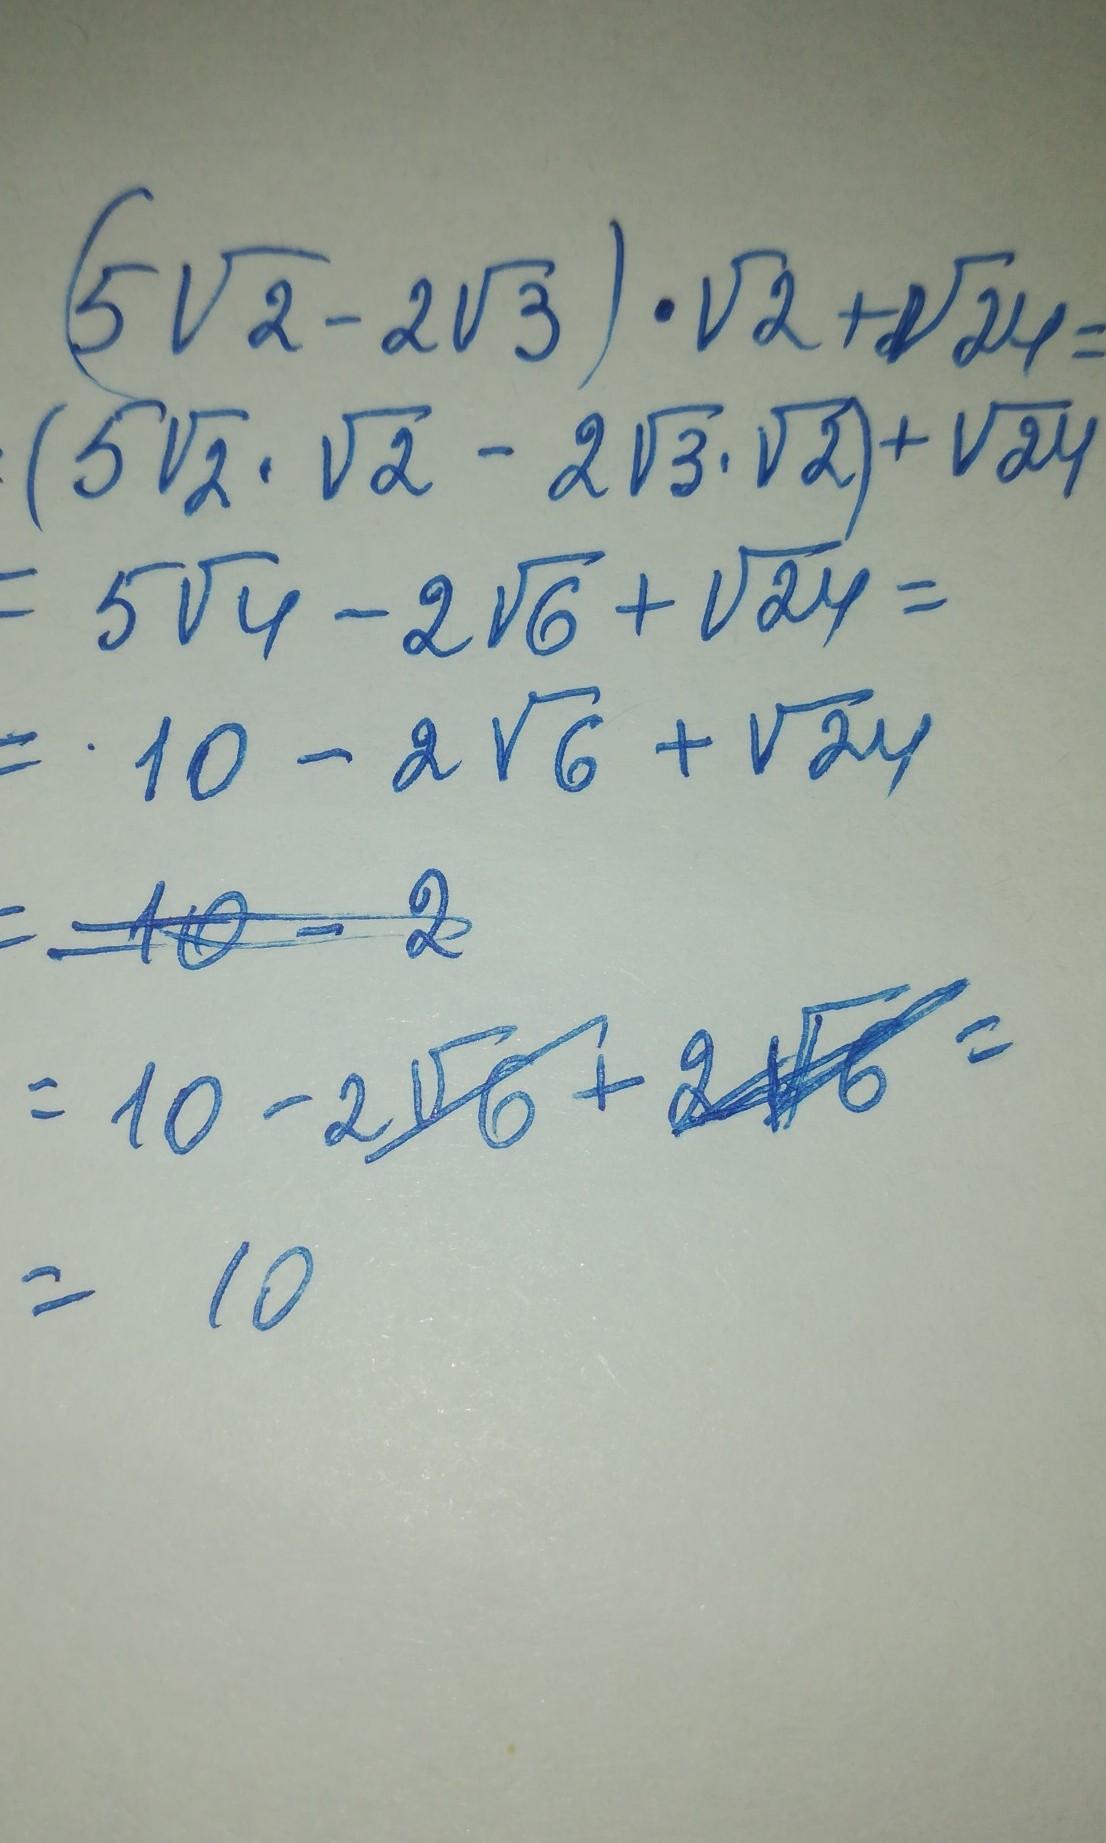 (5√2 - 2√3) • √2 + √24 =
= (5√2 · √2 - 2√3 · √2) + √24
= 5√4 - 2√6 + √24 =
= 10 - 2√6 + √24
= 10 - 2
= 10 - 2√6 + 2√6 =
= 10